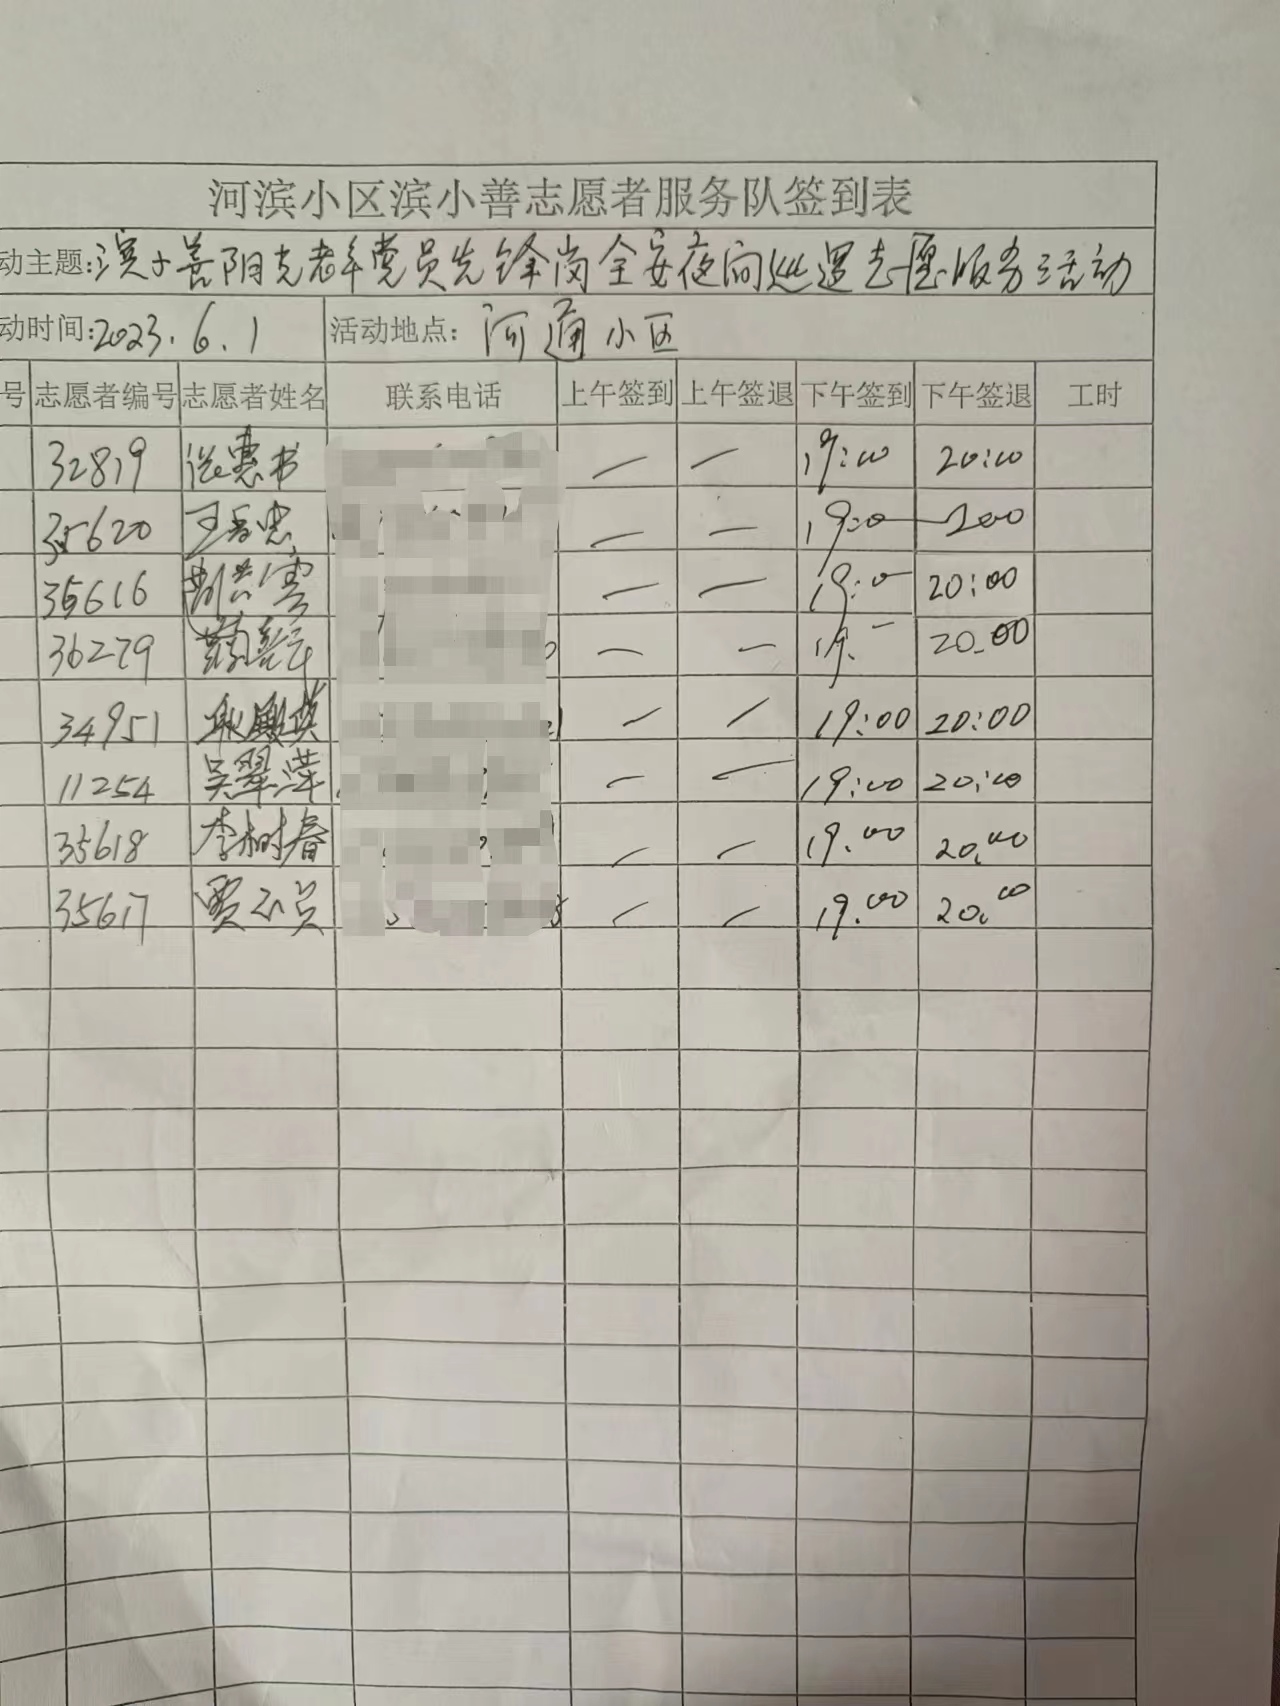 河滨小区滨小善志愿者服务队签到表
动主题:滨小善阳光老年党员先锋岗全安夜间巡逻志愿服务活动
动时间:2023.6.1 活动地点: 河通小区
号 志愿者编号 志愿者姓名 联系电话 上午签到 上午签退 下午签到 下午签退 工时
32819 惠书 — — 19:00 20:00
35620 王 忠 — — 19:0 200
35616 — — 19:0 20:00
36279 — — 19. 20.00
34951 — — 19:00 20:00
11254 吴翠萍 — — 19:00 20:00
35618 李树春 — — 19.00 20.00
35617 贾 — — 19.00 20.00